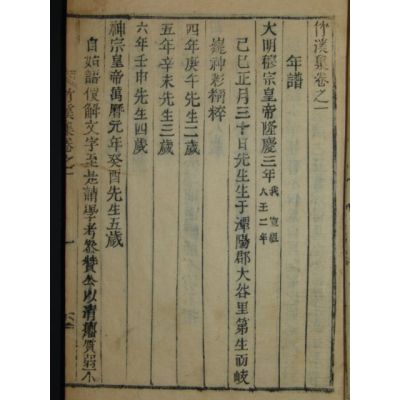 竹溪集卷之一
年譜
大明穆宗皇帝隆慶三年我 宣祖大王二年
己巳正月三十日先生生于潭陽郡大谷里第生而岐
嶷神彩精粹
四年庚午先生二歲
五年辛未先生三歲
六年壬申先生四歲
神宗皇帝萬曆元年癸酉先生五歲
自始語便解文字至是請學考參贊公以清羸質弱不
竹溪集卷之一 一